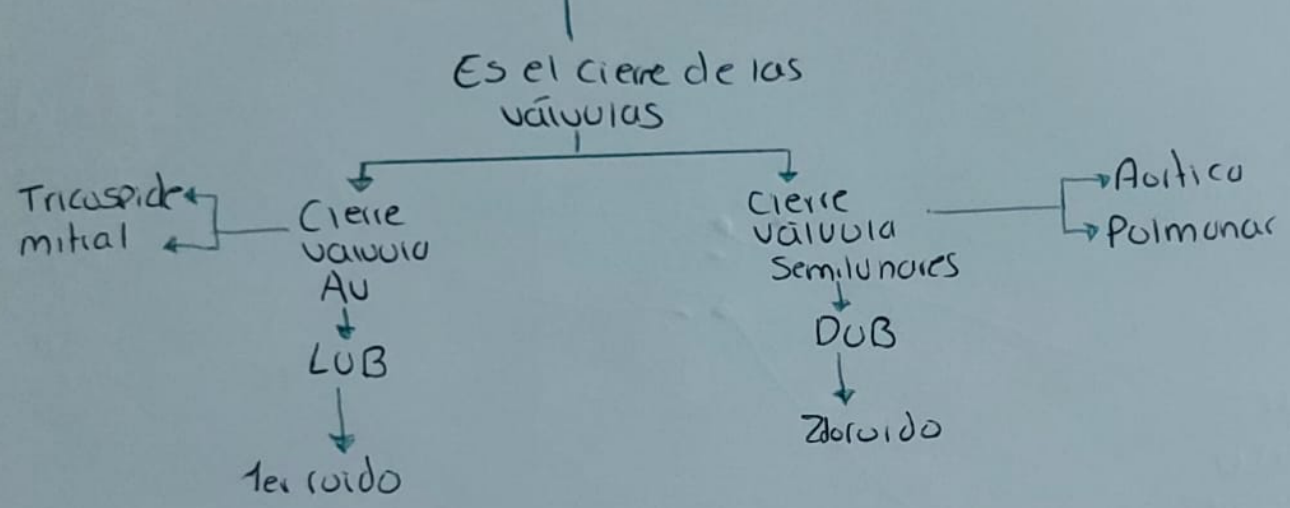 Es el cierre de las
válvulas
Tricuspide
mitral
Cierre
valvula
AV
LUB
1er ruido
Cierre
válvula
Semilunares
DUB
2do ruido
Aortica
Pulmonar